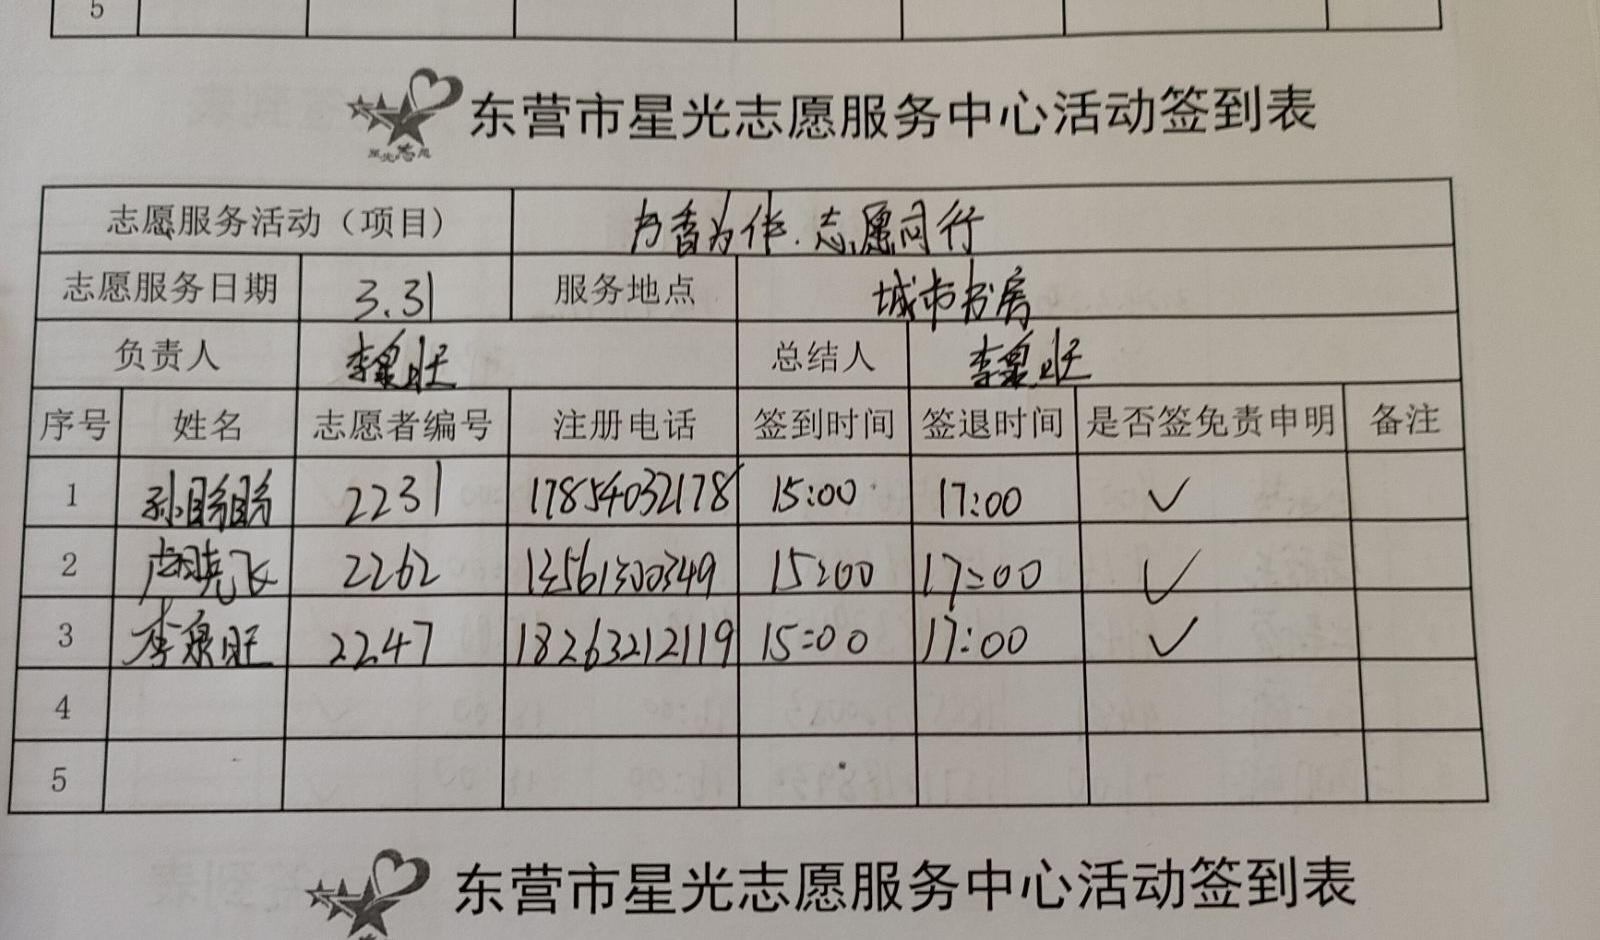 5
东营市星光志愿服务中心活动签到表
星光志愿
志愿服务活动（项目） 书香为伴.志愿同行
志愿服务日期 3.31 服务地点 城市书房
负责人 李泉旺 总结人 李泉旺
序号 姓名 志愿者编号 注册电话 签到时间 签退时间 是否签免责申明 备注
1 孙盼盼 2231 17854032178 15:00 17:00 ✓
2 卢晓飞 2262 13561300349 15:00 17:00 ✓
3 李泉旺 2247 18263212119 15:00 17:00 ✓
4
5
东营市星光志愿服务中心活动签到表